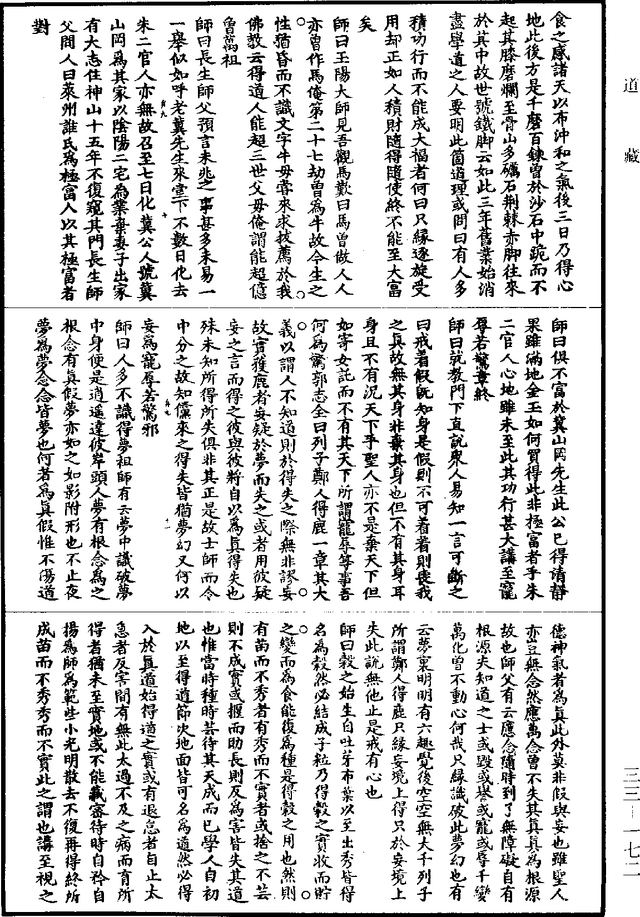 道藏
食之感諸天以布沖和之氣後三日乃得心
地此後方是千磨百鍊曾於沙石中跪而不
起其膝磨爛至骨山多礪石荆棘赤脚往來
於其中故世號鐵脚云如此三年舊業始消
盡學道之人要明此箇道理或問曰有人多
積功行而不能成大福者何曰只緣逐旋受
用却正如人積財隨得隨使終不能至大富
矣
師曰王陽大師見吾觀馬歎曰馬曾做人人
亦曾作馬俺第二十七劫曾為牛故今生之
性猶昏而不識文字牛母嘗來求拔薦於我
佛教云得道人能超三世父母俺謂能超億
曾萬祖
師曰長生師父預言未兆之事甚多未易一
一舉似如呼老冀先生來堂下不數日化去
朱二官人亦無故召至七日化冀公人號冀
山岡為其家以陰陽二宅為業棄妻子出家
有大志住神山十五年不復窺其門長生師
父問人曰萊州誰氏為極富人以其極富者
對
師曰俱不富於冀山岡先生此公已得清靜
果雖滿地金玉如何買得此非極富者乎朱
二官人心地雖未至此其功行甚大講至寵
辱若驚章終
師曰就教門下直說衆人易知一言可斷之
曰戒着假既知身是假則不可着着則喪我
之真故無其身非棄其身也但不有其身耳
身且不有況天下乎聖人亦不是棄天下但
如寄女託而不有其天下所謂寵辱等事吾
何為驚郭志全曰列子鄭人得鹿一章其大
義以謂人不知道則於得失之際無非謬妄
故實獲鹿者妄疑於夢而失之或者用彼疑
妄之言而得之彼與彼將自以為真得失也
殊未知所得所失俱非其正是故士師而令
中分之故知儻來之得失皆猶夢幻又何以
妄為寵辱若驚邪
師曰人多不識得夢祖師有云夢中識破夢
中身便是逍遥達彼岸頭人夢有根念為之
根念有真假夢亦如之如影附形也不止夜
夢為夢念念皆夢也何者為真假惟不陽道
德神氣者為真此外莫非假與妄也雖聖人
亦豈無念然應萬念曾不失其真真為根源
故也師父有云應念隨時到了無障礙自有
根源夫知道之士或毀或譽或寵或辱千變
萬化曾不動心何哉只緣識破此夢幻也有
云夢裏明明有六趣覺後空空無大千列子
所謂鄭人得鹿只緣妄境上得只於妄境上
失此說無他止是戒有心也
師曰穀之始生自吐芽布葉以至出秀皆得
名為穀然必結成子粒乃得穀之實收而貯
之變而為食能復為種是得穀之用也然則
有苗而不秀者有秀而不實者或捨之不芸
則不成實或揠而助長則反為害皆失其道
也惟當時種時芸待其天成而已學人自初
地以至得道節次地面皆可名為道然必得
入於真道始得道之實或有退怠者自止太
急者反害間有無此太過不及之病而育所
得者猶未至實地或不能藏畜待時自矜自
揚為師為範些小光明散去不復再得終所
成苗而不秀秀而不實此之謂也講至視之
三三—一七二